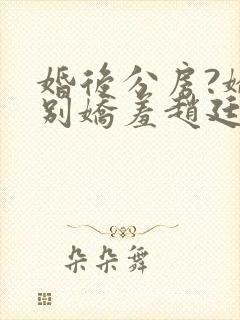 婚後分房?
別嬌羞趙廷
朵朵舞